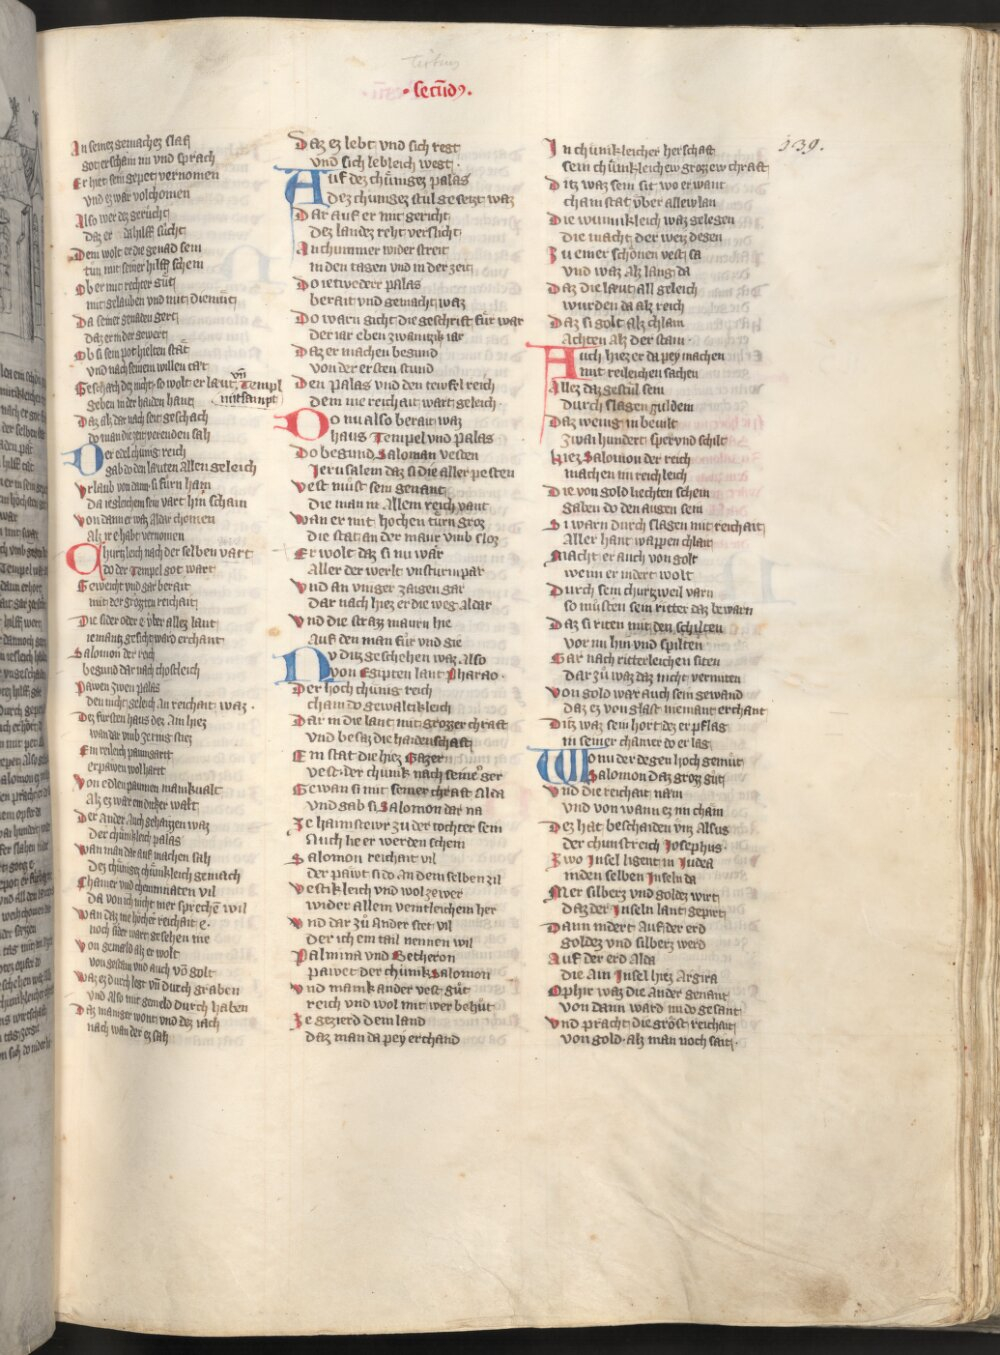 tertius
· secūdꝯ ·
139.
In seinez gemachez slaf
got erscham im vnd sprach
Er hiet sein gepet vernomen
vnd ez war volchomen
Also wer dez gerücht
daz er da hilff sücht
Dem wolt er die genad sein
tun mit seiner hilff schein
Ob er mit rechter gut
mit gelauben vnd mit diemut
Da seiner genaden gert
daz er in der gewert
Ob si sein pot hielten stat
vnd nach seinem willen tat
Geschach dez nicht so wolt er laut vn̄ Templ
Geben in der haiden hant mitsampt
Daz alz dar nach seit geschach
do man die zeit verenden sah
Der edel chunig reich
gab do den lauten allen geleich
Vrlaub von dann si fürn haim
Da iegleichem sein vart hin schain
Von danne waz Aldar chomen
Alz ir e habt vernomen
Churtzleich nach der selben vart
do der Tempel got wart
Geweicht vnd gar berait
mit der grozten reichait
Die sider oder e vber allez laut
iemantz gesicht ward erchant
Salomon der reich
begund dar nach chostleich
Pawen zwen palas
den nicht geleich An reichait waz .
Dez fursten haus dez Am hiez
wan dar vmb zering stiez
Ein reileich paumgart
er pawen wol hart
Von edlen paumen manikualt
Alz ez war ein dicker walt
Der ander Auch gehaizzen waz
Der chünkleich palas
Wan man dar auf machen sah
Dez chüngez chünkleich gemach
Chamer vnd chemmnaten vil
da von ich nicht mer sprechē wil
Wan daz nie hocher reichait e .
noch sider wart gesehen me
Von gemald alz er wolt
von gestain vnd auch vō golt
Waz ez durch legt vn̄ durch graben
vnd Also mit gemeld durch haben
Daz maniger wont vnd dez iach
nach wan der ez sah
Daz ez lebt vnd sich regt
vnd sich lebleich wegt .
Auf dez chüngez palas
Dez chungez stul gesetzt waz
Dar auf er mit gericht
Dez landez reht verslicht
An chummer wider streit
in den tagen vnd in der zeit
Do ietwederr palas
berait vnd gemacht waz
Do warn gicht die geschrift für war
der iar eben zwaintzik iar
Daz er machen begund
Von der ersten stund
Den palas vnd den tempel reich
dem nie reichait wart geleich .
Do nu also berait waz
haus Tempel vnd palas
Do begund Saloman vesten
Jerusalem daz si die aller pesten
Vest müst sein genant
Die man in Allem reich vant
Wan er mit hochen türn groz
die stat an der maur vmb sloz
Er wolt daz si nu war
Aller der werlt vnsturmpar
Vnd an vniger zaigen gar
Dar nach hiez er die weg Aldar
Vnd die strazz maurn hie
Auf den man für vnd gie
Nv ditz geschehen waz Also
von Egipten lant Pharao .
Der hoch chünig reich
cham do gewaltkleich
Dar in die lant mit grozzer chraft
Vnd besaz die haidenschaft
Ein stat die hiez Gazer
vest . der chunk nach seiner ger
Gewan si mit seiner chraft Alda
Vnd gab si Salomon dar na
Ze haimstewr zu der tochter sein
Auch hie er werden schein
Salomon reichait vil
der pawt si do an dem selben zil
Vestikleich vnd wol ze wer
wider allem veintleichem her
Vnd dar zů ander stet vil
Der ich ein tail nennen wil
Palmina vnd Betheron
pawet der chünik Salomon
Vnd manik ander vest gůt
reich vnd wol mit wer behůt
Ze gezierd dem land
daz man da pey erchand
In chünikleicher herschaft
Sein chünkleichew grozzew chraft
Ditz waz sein sit wo er want
cham stat vber allew lan
Die wunnkleich waz gelegen
die macht der weiz degen
Zu einer schönen vest sa
vnd waz alz lang da
Daz die laut all geleich
wurden da alz reich
Daz si golt alz chlain
Achten alz der stain .
Auch hiez er da pey machen
mit reileichen sachen
Allez daz gestül sein
Durch slagen guldein
Daz wenig in beuilt
Zwai hundert sper vnd schilt
Hiez Salomon der reich
machen im reichleich
Die von gold liechten schein
gaben do den augen sein
Si warn durch slagen mit reichait
Aller hant wappen chlait
Macht er auch von golt
wenn er indert wolt
Durch sein churtzweil varn
so müsten sein ritter daz bewarn
Daz si riten mit den schilten
Vor im hin vnd spilten
Gar nach ritterleichen siten
Dar zů waz daz nicht vermiten
Von gold war auch sein gewand
Daz ez von glast niemant erchant
Ditz waz sein hort dez er pflag
in seiner chamer do er lag
Wo nu der degen hoch gemüt
Salomon daz groz gůt
Vnd die reichait nam
Vnd von wann ez im cham
Dez hat beschaiden vnz Alsus
der chunstreich Josephus .
Zwo Jnsel ligent in Judea
in den selben Jnseln da
Mer silberz vnd goldez wirt
Daz der Jnseln lant gepirt
Dann indert Auf der erd
goldez vnd silberz werd
Auf der erd Alda
Die Ain Jnsel hiez Argira
Ophir waz die Ander genant
Von dann ward im do gesant
Vnd pracht die gröst reichait
Von gold . alz man noch sait .